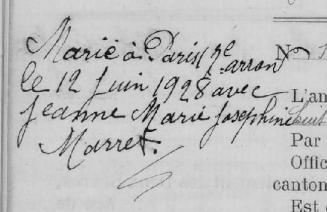 Marié à Paris 7e arron
le 12 Juin 1928 avec
Jeanne Marie Josephine
Marret.
No
L'an
Par
Offic
canton
Est